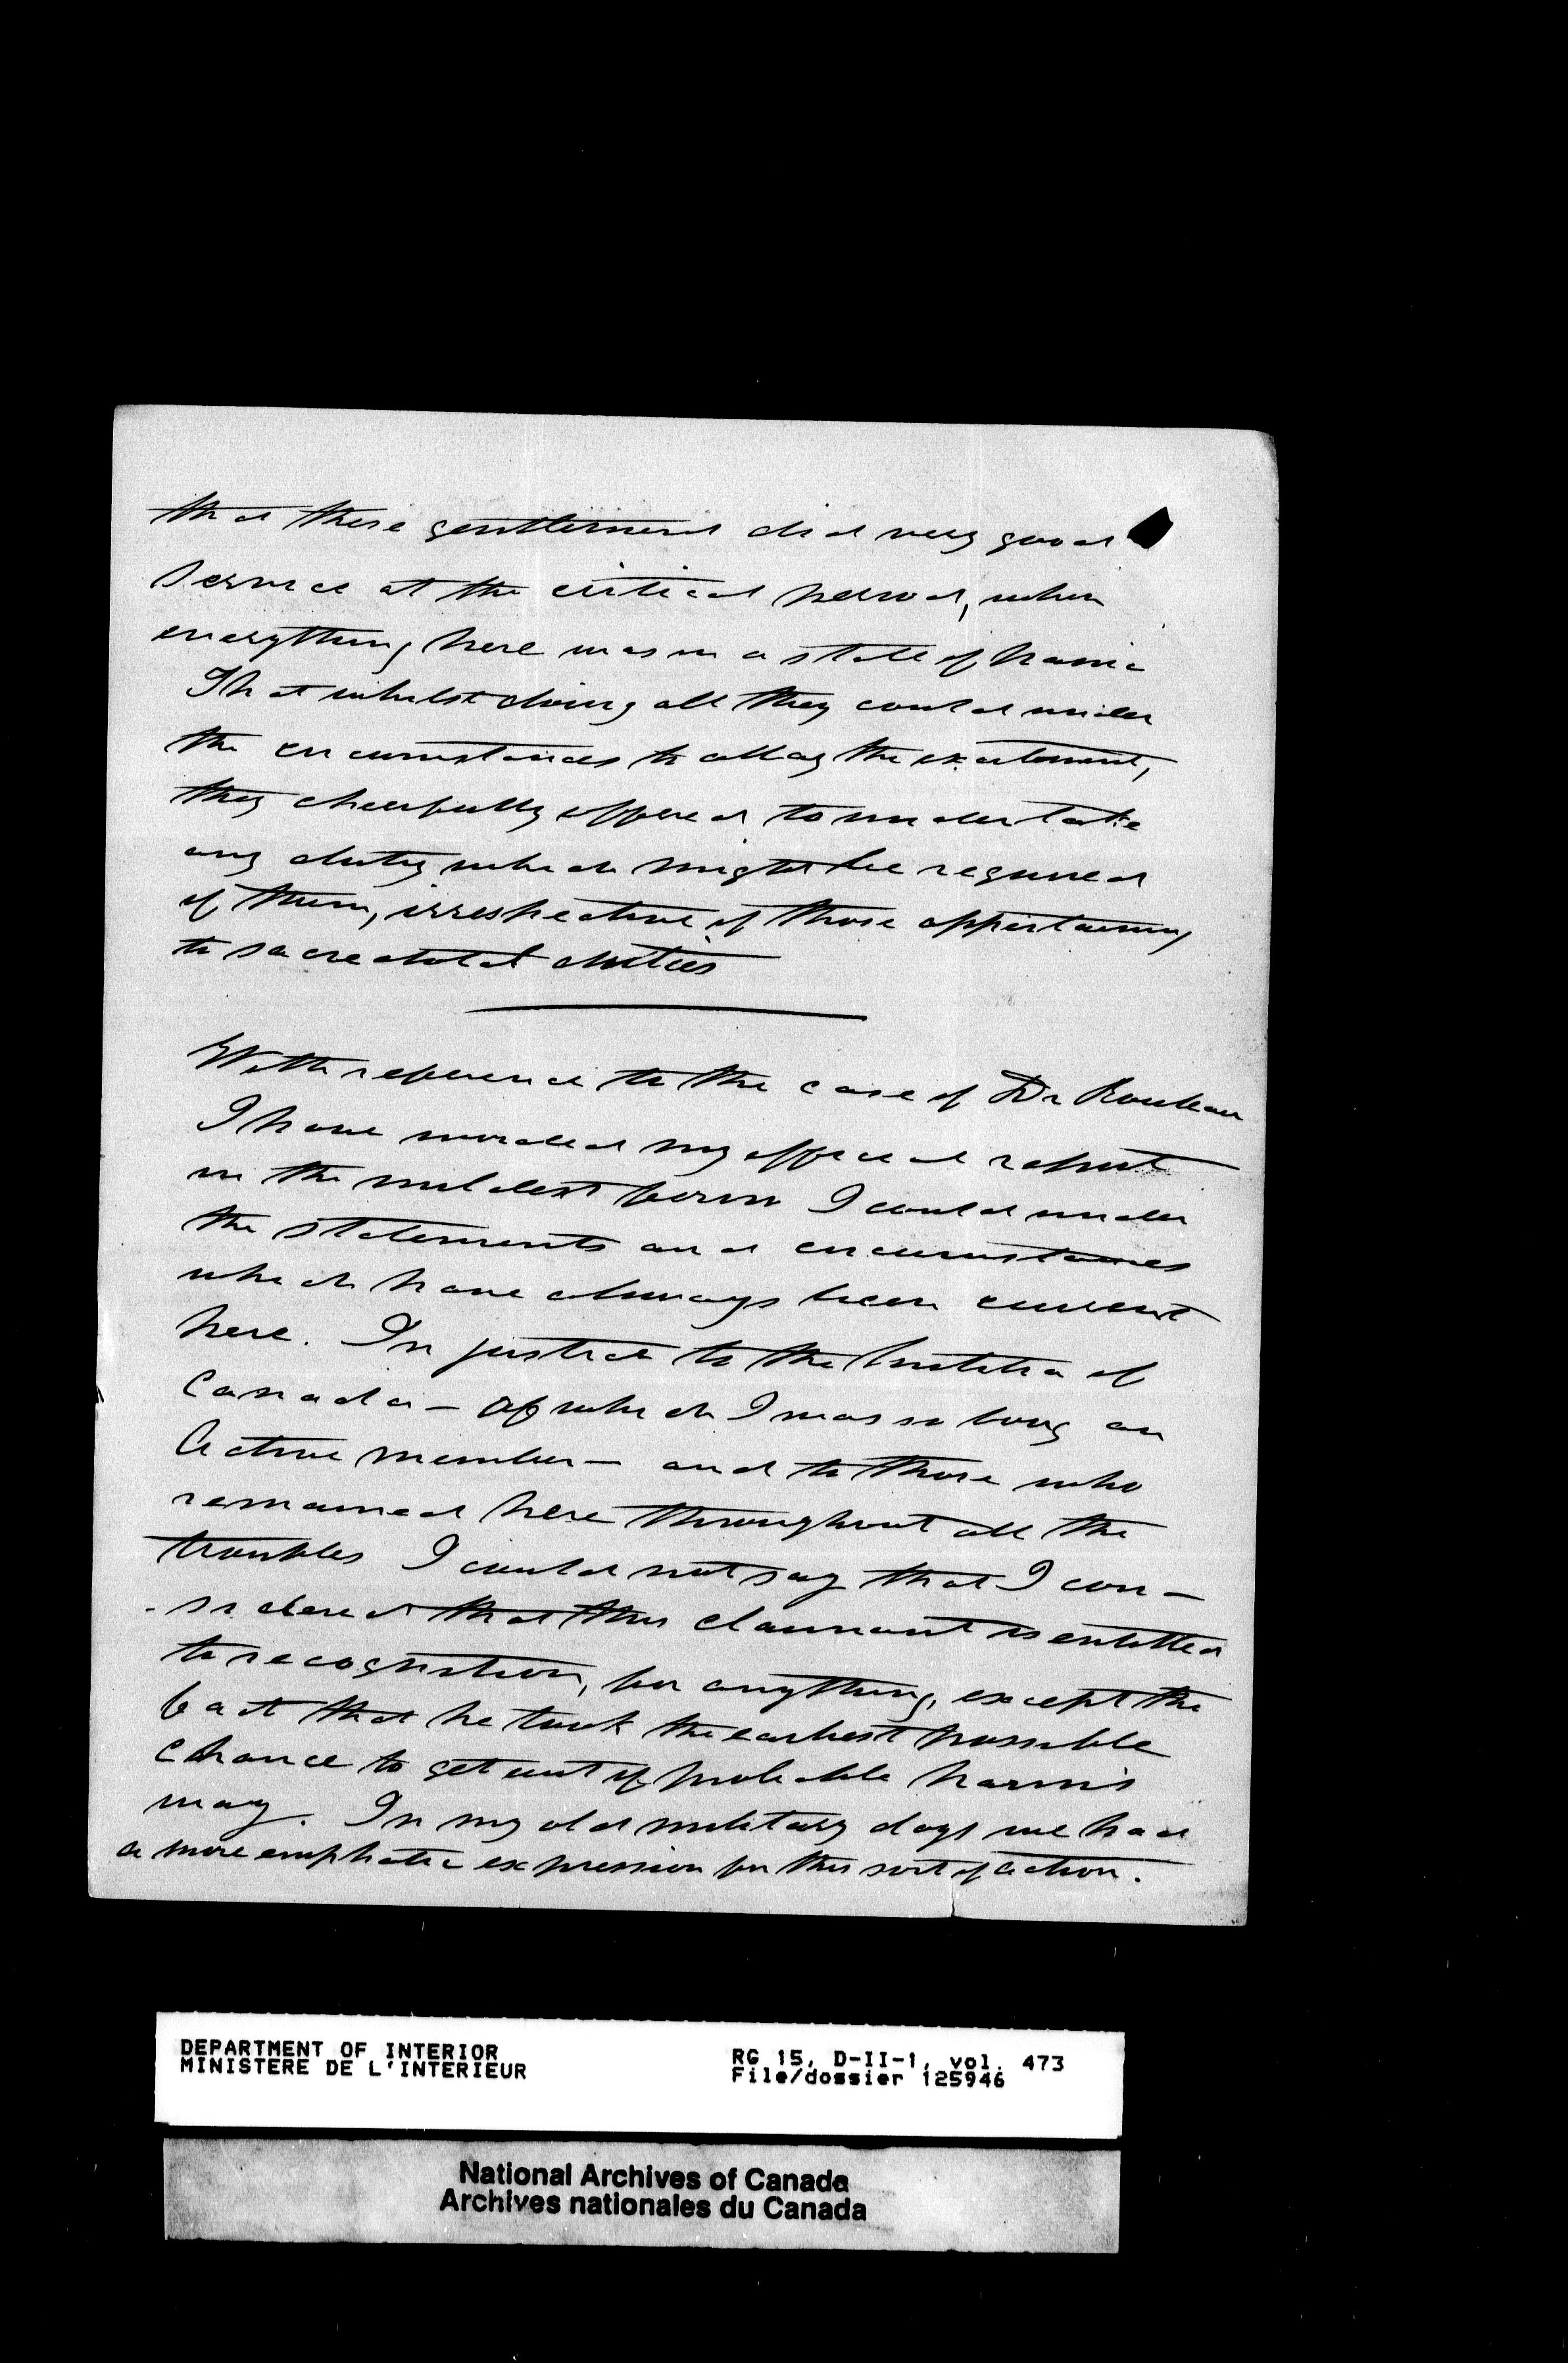 that these gentlemen did very good
service at the critical period, when
everything here was in a state of panic
That whilst doing all they could under
the circumstances to allay the excitement,
they cheerfully offered to undertake
any duty which might be required
of them, irrespective of those appertaining
to sacredotal duties
With reference to the case of Dr Rouleau
I have worded my official report
in the mildest form I could under
the statements and circumstances
which have always been current
here. In justice to the Militia of
Canada - of which I was so long an
Active member - and to those who
remained here throughout all the
troubles I could not say that I con-
-sidered that this claimant is entitled
to recognition, for anything, except the
fact that he took the earliest possible
chance to get out of probable harm's
way. In my old military days we had
a more emphatic expression for this sort of action.
DEPARTMENT OF INTERIOR
MINISTERE DE L'INTERIEUR
RG 15, D-II-1, vol. 473
File/dossier 125946
National Archives of Canada
Archives nationales du Canada